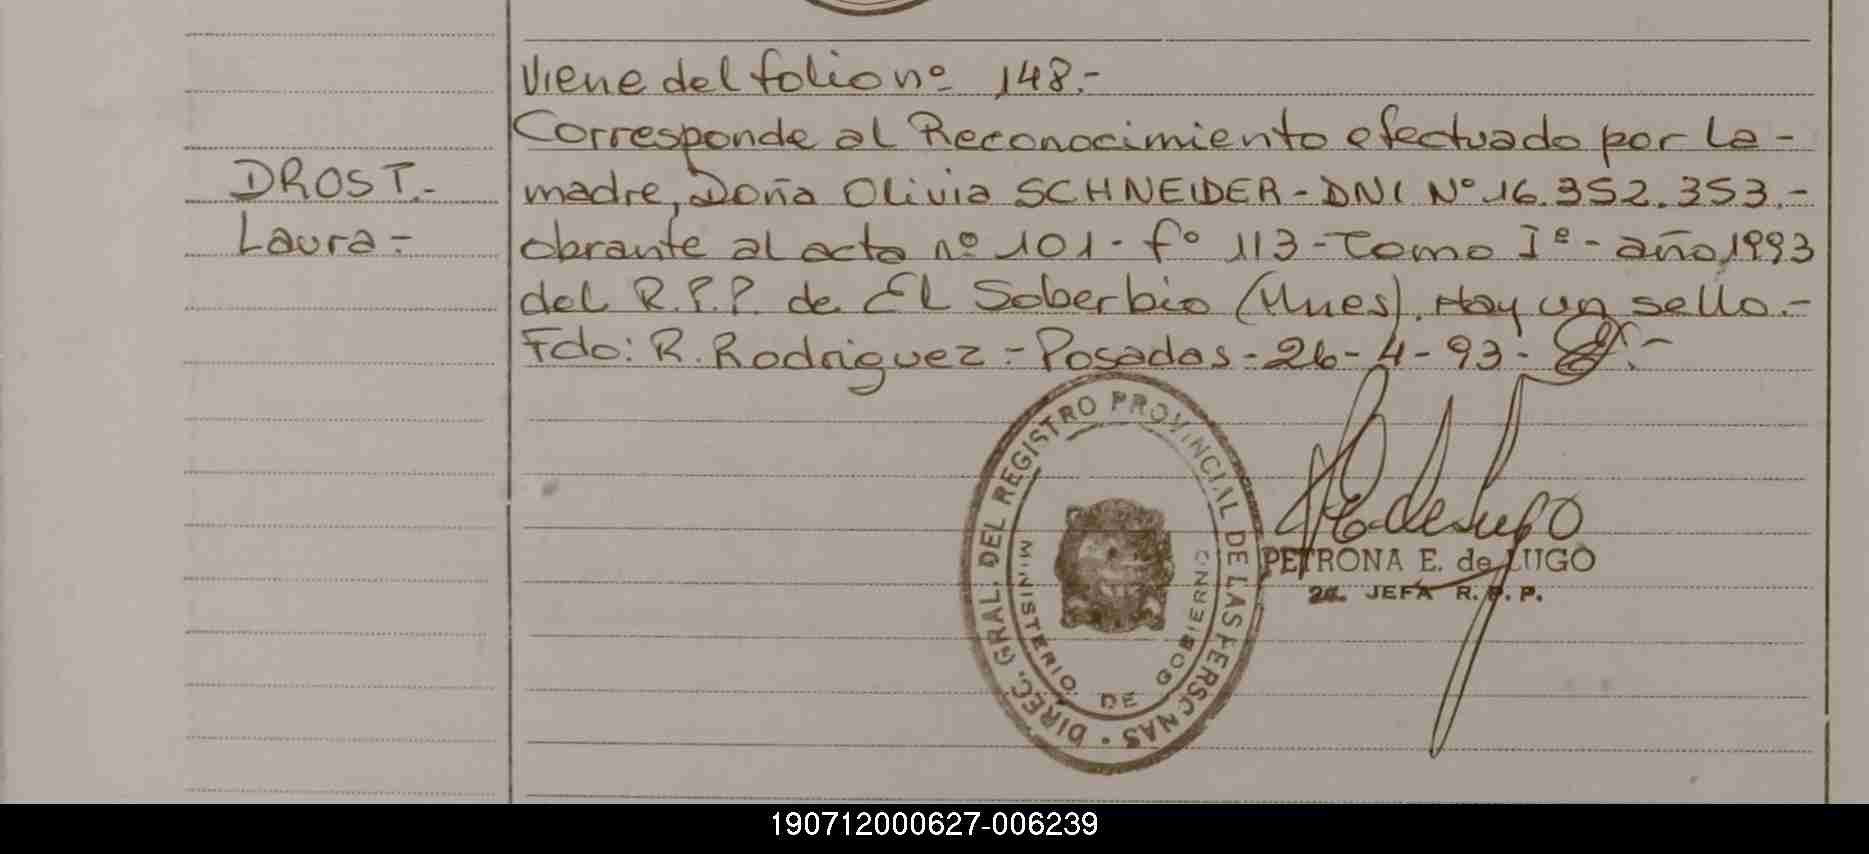 Viene del folio nº 148.-
Corresponde al Reconocimiento efectuado por la-
DROST.-
madre, Doña Olivia SCHNEIDER-DNI Nº 16.352.353.-
Laura-
obrante al acta nº 101-fº 113-Tomo Iº-año 1993
del R.P.P. de El Soberbio (Mnes). Hay un sello.-
Fdo: R. Rodriguez-Posadas-26-4-93-
DIREC. GRAL. DEL REGISTRO PROVINCIAL DE LAS PERSONAS
MINISTERIO DE GOBIERNO
PETRONA E. de LUGO
JEFA R.P.P.
190712000627-006239